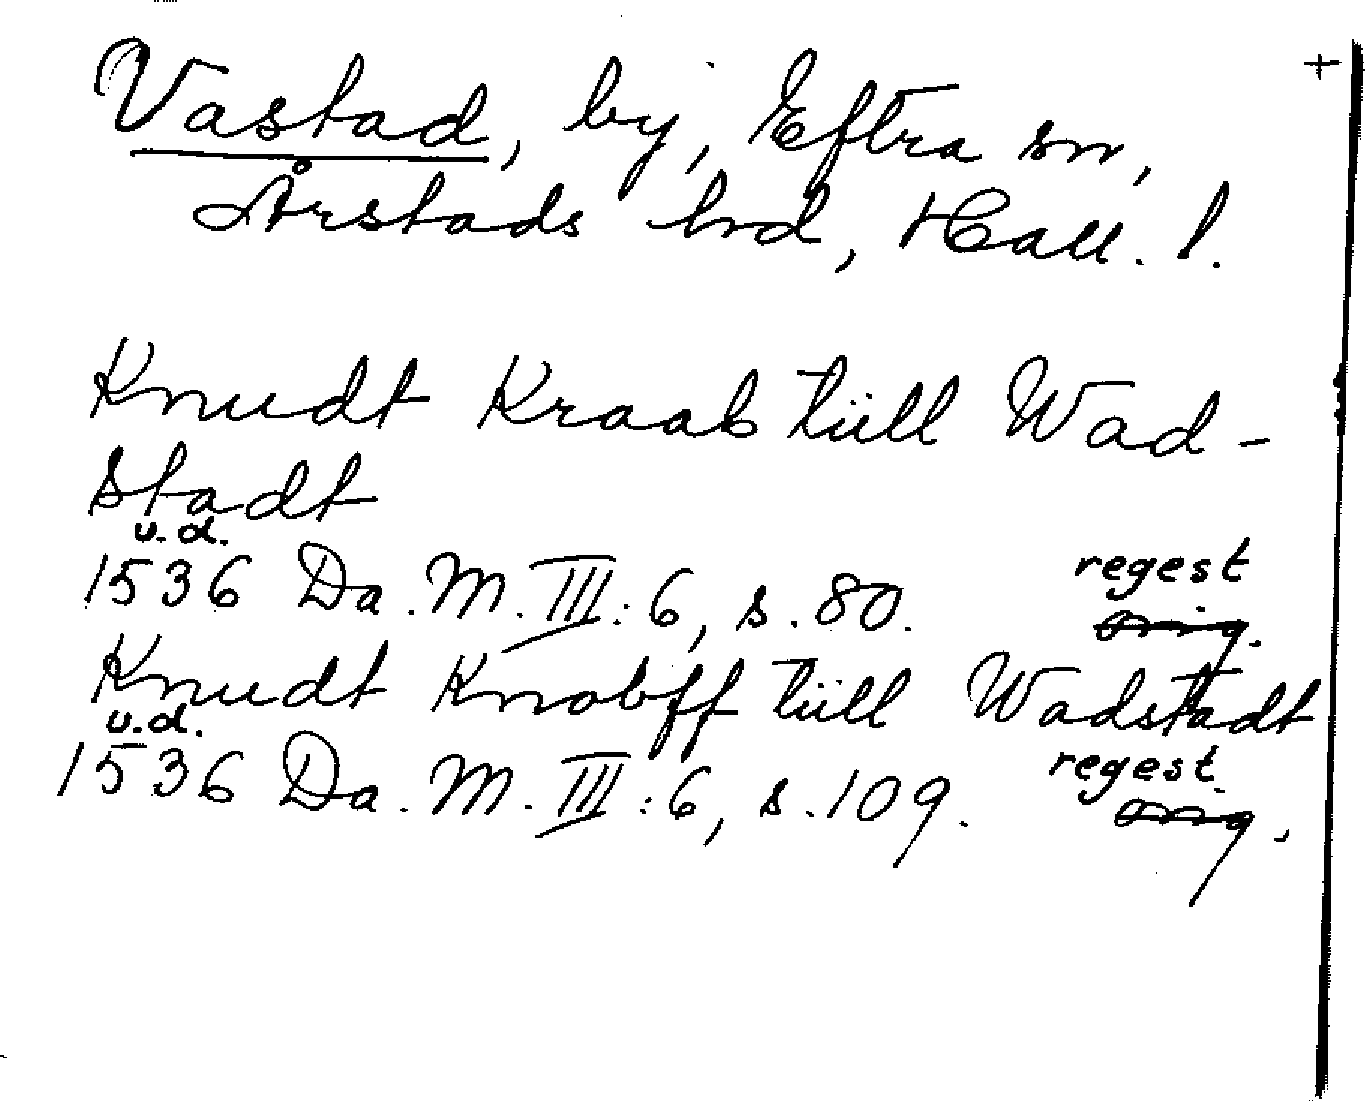 Vastad, by, Eftra sn, +
Årstads hd, Hall. l.
Knudt Kraab tüll Wad-
stadt
u.d.
1536 Da. M. III:6, s. 80. regest
orig.
Knudt Knobff tüll Wadstadt
u.d.
1536 Da. M. III:6, s. 109. regest
orig.